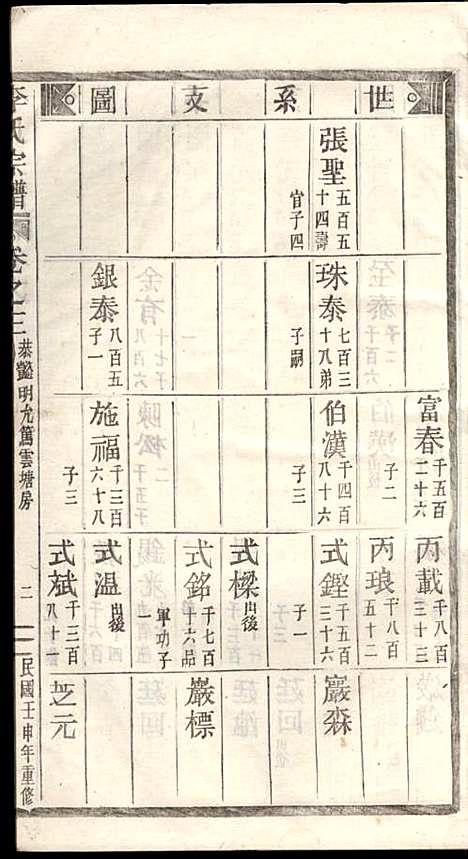 世系支圖
張聖 五百五十四壽官子四
珠泰 七百三十八弟子嗣
銀泰 八百五子一
富春 千五百二十六
子二
伯漢 千四百八十六
子三
施福 千三百六十八
子三
丙載 千八百三十三
丙琅 千八百五十二
式鏗 千五百三十六
子一
式樑 出後
式銘 千七百十六品軍功子一
式温 出後
式斌 千三百八十二
巖森
巖標
芝元
李氏宗譜
卷之三
恭懿明九萬雲塘房
二
民國壬申年重修